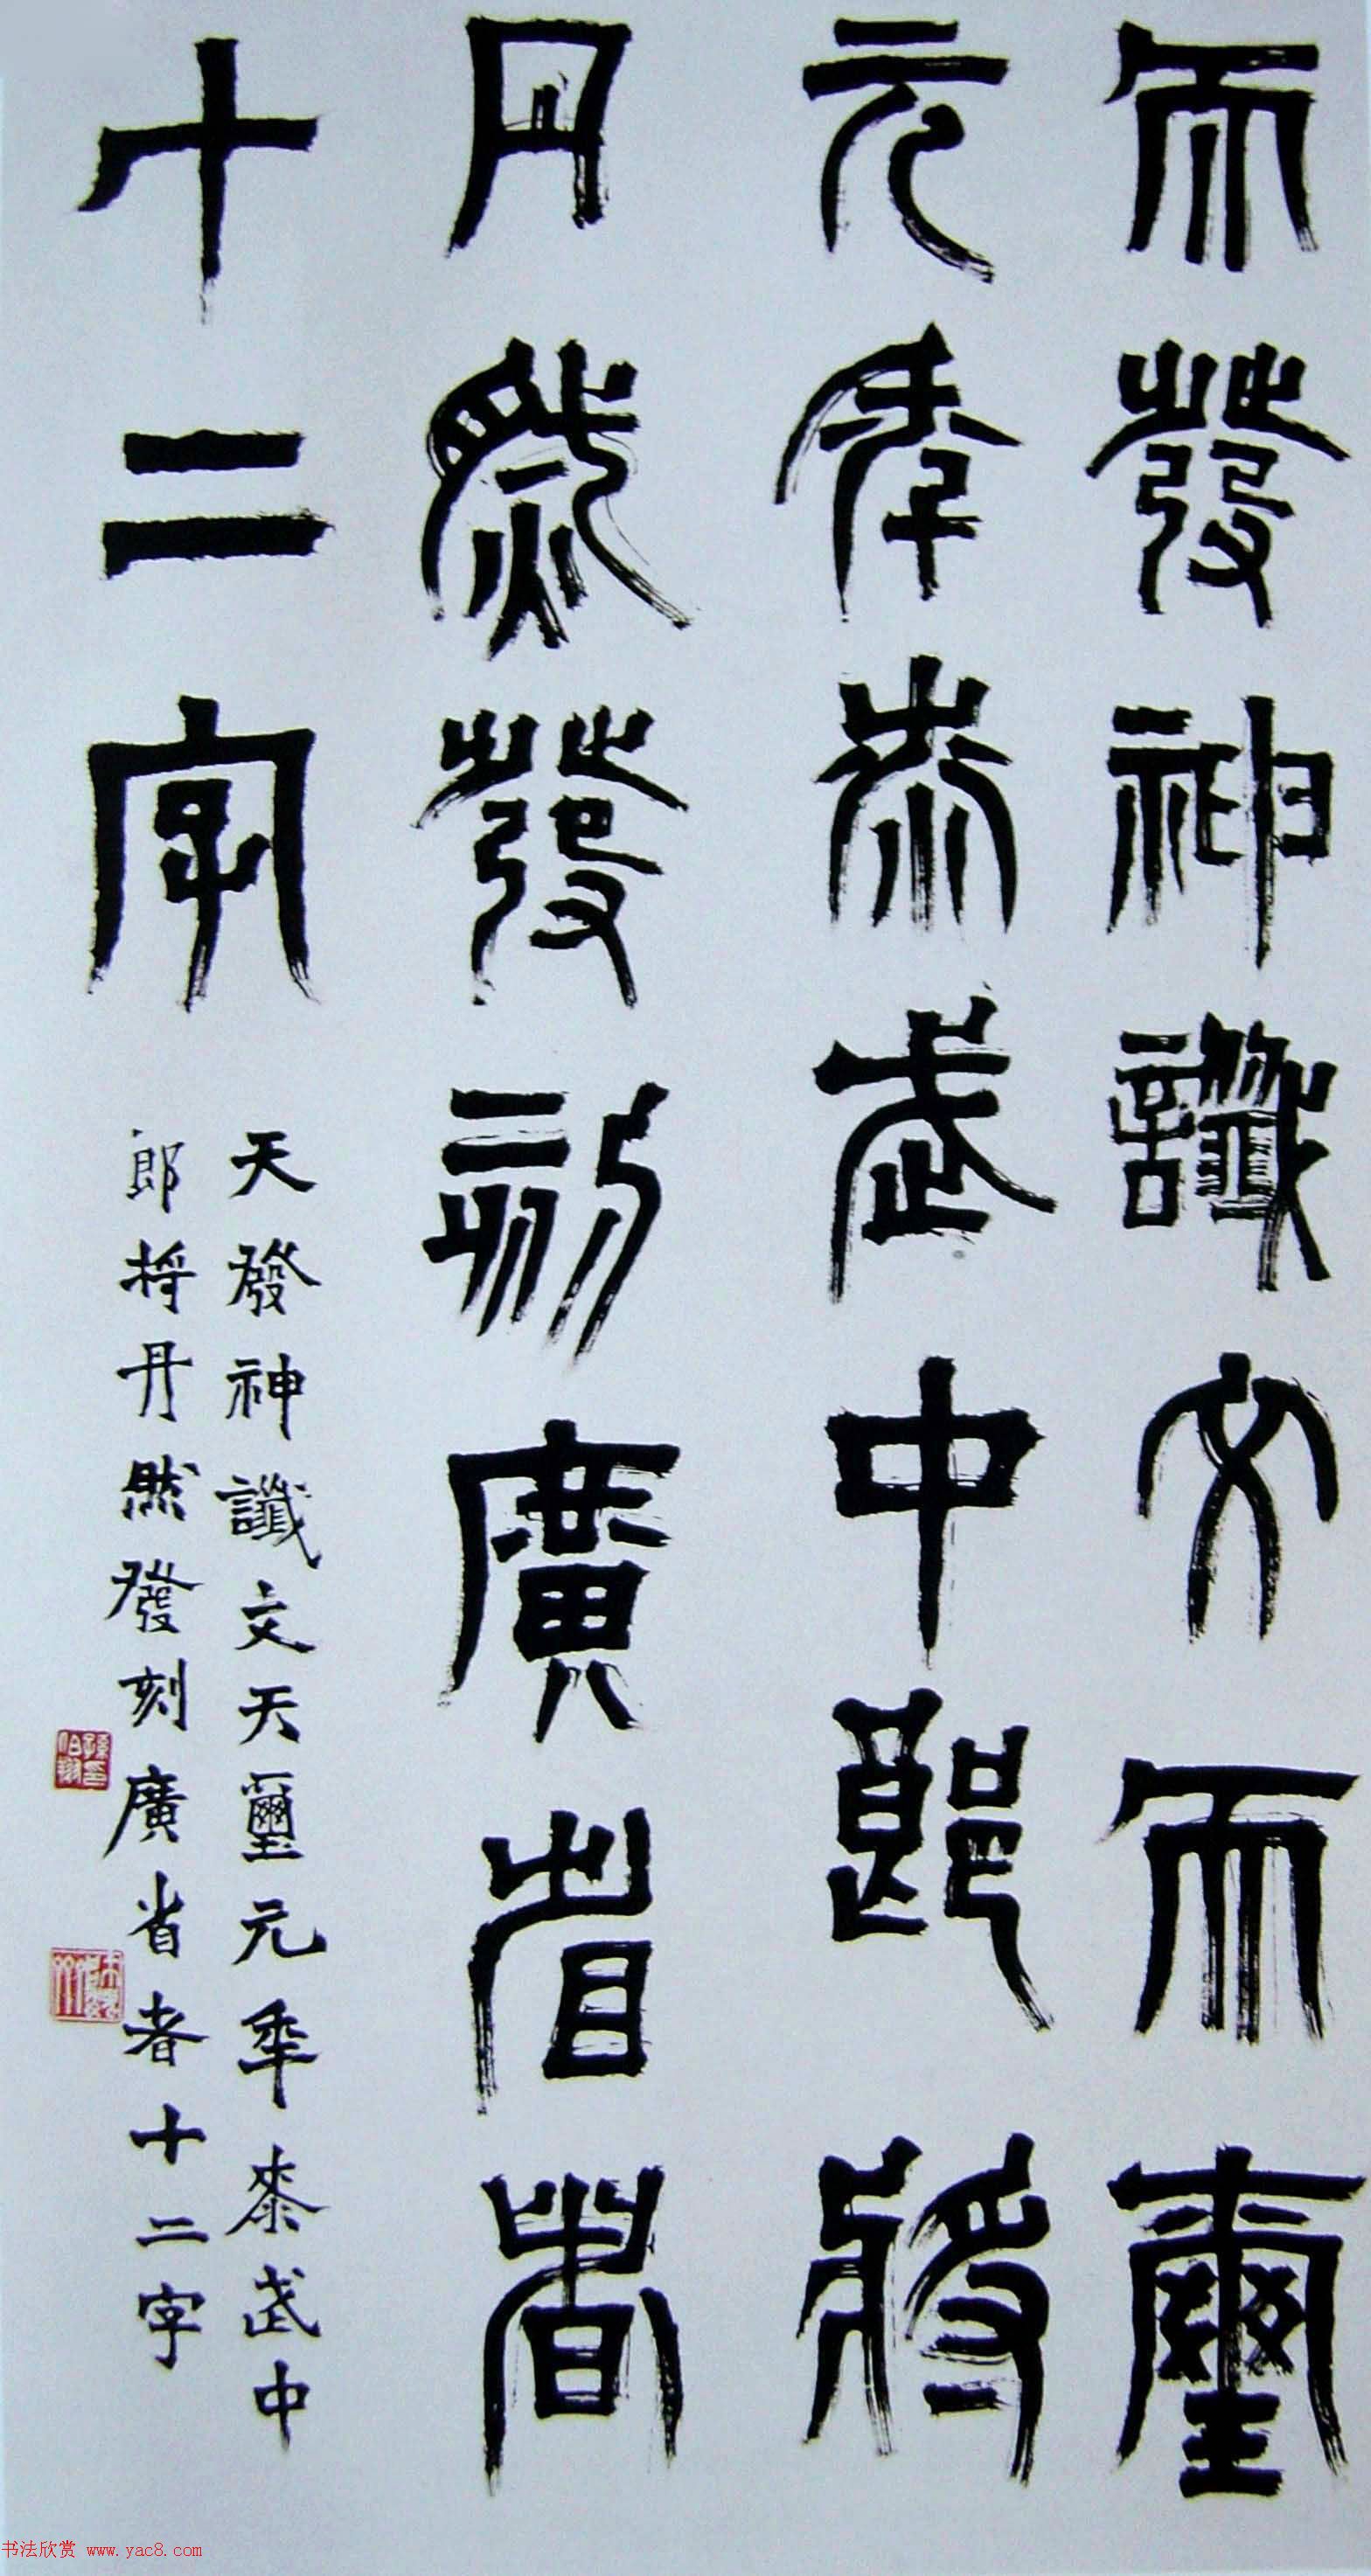 天發神讖文天璽
元年泰武中郎將
丹然發刻廣省者
十二字
天發神讖文天璽元年泰武中
郎將丹然發刻廣省者十二字
书法欣赏 www.yac8.com